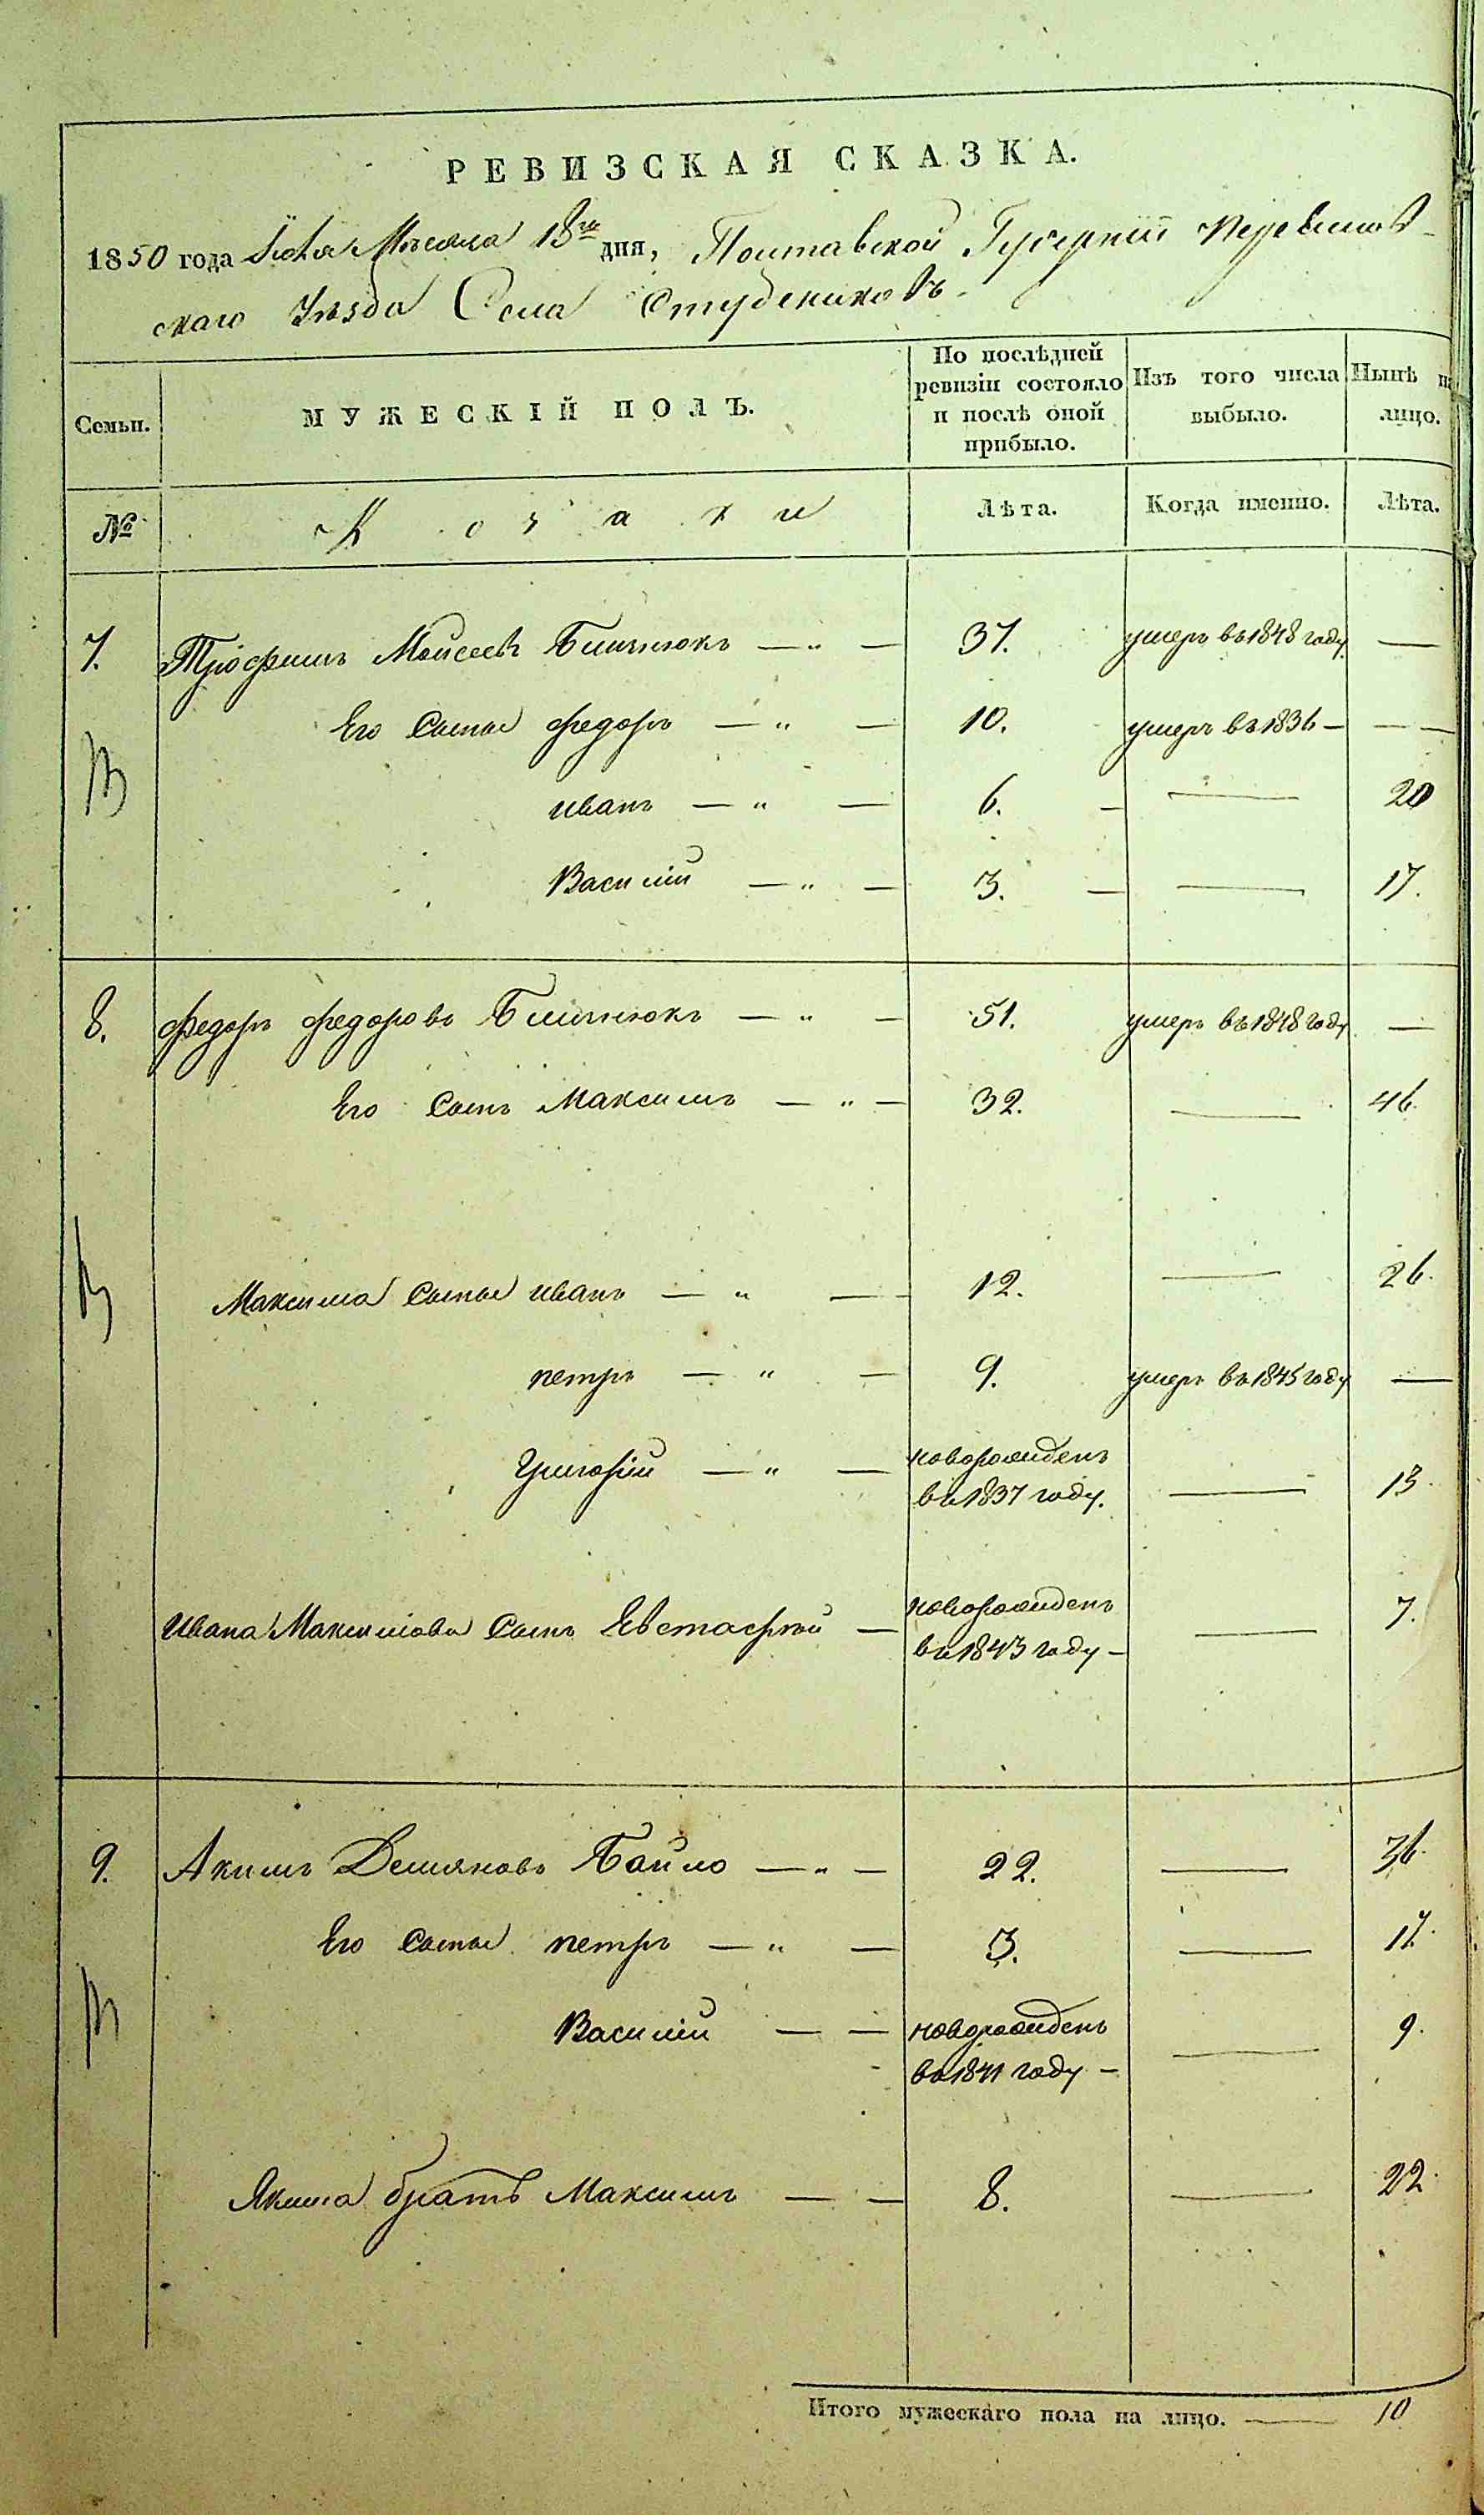 РЕВИЗСКАЯ СКАЗКА.
1850 года Іюля Мѣсяца 18го дня, Полтавской Губерніи Переяслов-
скаго Уѣзда Села Студениковъ.
Семьи.
МУЖЕСКІЙ ПОЛЪ.
По послѣдней
ревизіи состояло
и послѣ оной
прибыло.
Изъ того числа
выбыло.
Нынѣ на
лицо.
№
Козаки
Лѣта.
Когда именно.
Лѣта.
7. Трофимъ Моисеевъ — " — 37. умеръ въ 1848 году —
Его Сыны Федоръ — " — 10. умеръ въ 1836 — — —
Иванъ — " — 6. — — 20
Василій — " — 3. — — 17.
8. Федоръ Федоровъ — " — 51. умеръ въ 1848 году —
Его Сынъ Максимъ — " — 32. — 46.
Максима Сыны Иванъ — " — 12. — 26.
Петръ — " — 9. умеръ въ 1845 году —
Григорій — " — новорожденъ
въ 1837 году. — 13
Ивана Максимова Сынъ Евстафій — новорожденъ
въ 1843 году — — 7.
9. Акимъ Демяновъ Бойло — " — 22. — 36.
Его Сыны Петръ — " — 3. — 17.
Василій — — новорожденъ
въ 1841 году — — 9.
Якима братъ Максимъ — — 8. — 22.
Итого мужескаго пола на лицо. — 10